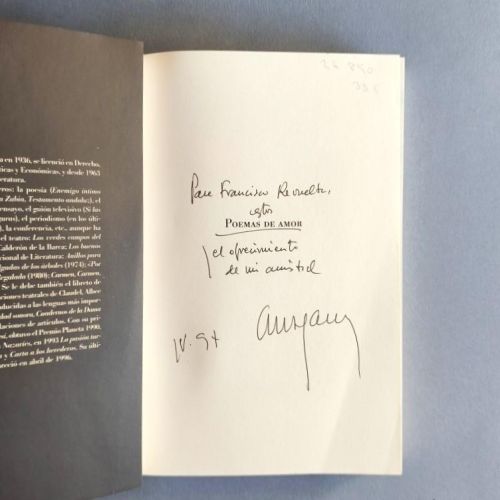 a en 1936, se licenció en Derecho,
ticas y Económicas, y desde 1963
eratura.
eros: la poesía (Enemigo íntimo
a Zubia, Testamento andaluz), el
ensayo, el guión televisivo (Si las
guras), el periodismo (en los últi-
), la conferencia, etc., aunque ha
el teatro: Los verdes campos del
Calderón de la Barca; Los buenos
cional de Literatura); Anillos para
lgadas de los árboles (1974); ¿Por
Regalada (1980); Carmen, Carmen,
Se le debe también el libreto de
ciones teatrales de Claudel, Albee
oducidas a las lenguas más impor-
dad sonora, Cuadernos de la Dama
laciones de artículos. Con su pri-
sí, obtuvo el Premio Planeta 1990,
Nazaríes, en 1993 La pasión tur-
y Carta a los herederos. Su últi-
reció en abril de 1996.
Para Francisco Revuelta,
estos
POEMAS DE AMOR
y el ofrecimiento
de mi amistad
IV. 97